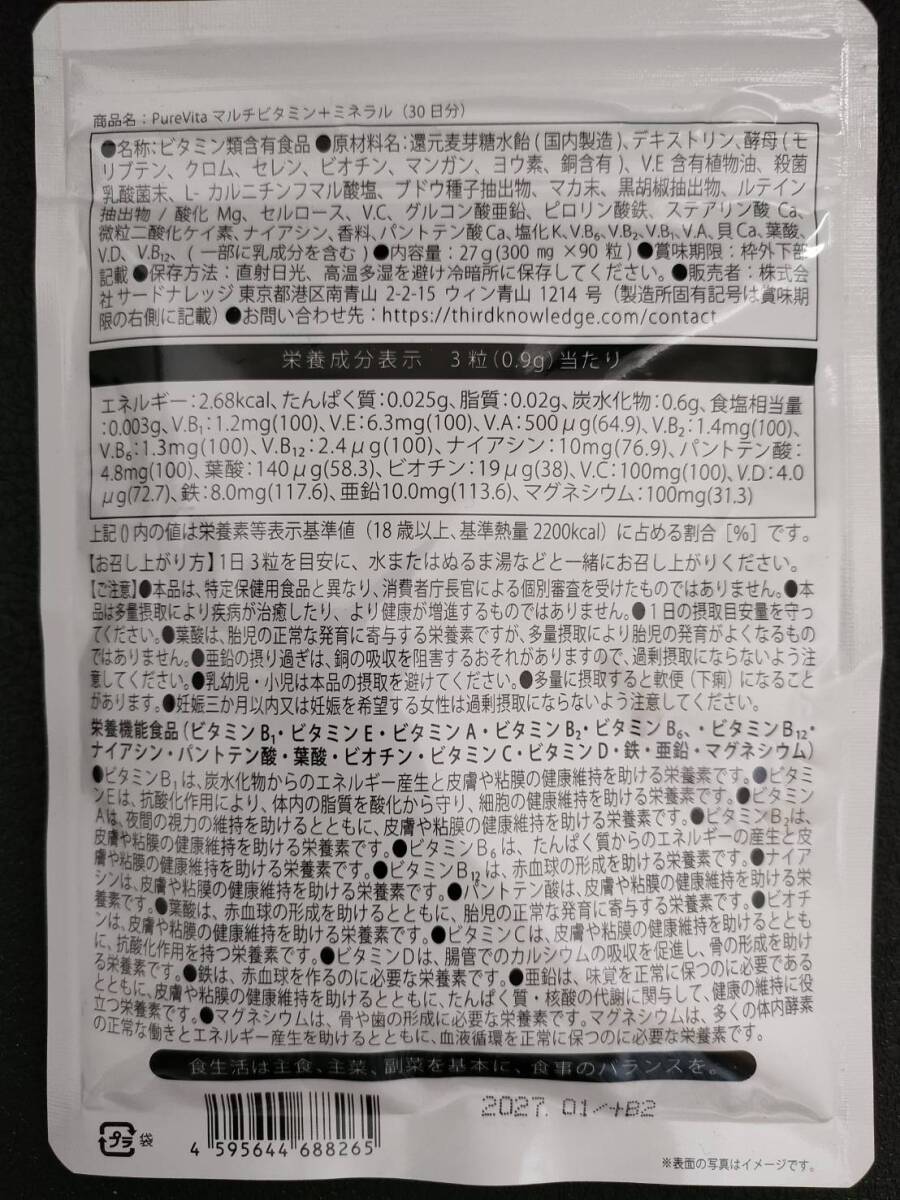 商品名：PureVita マルチビタミン＋ミネラル（30 日分）
●名称：ビタミン類含有食品 ●原材料名：還元麦芽糖水飴（国内製造）、デキストリン、酵母（モ
リブテン、クロム、セレン、ビオチン、マンガン、ヨウ素、銅含有）、V.E 含有植物油、殺菌
乳酸菌末、L- カルニチンフマル酸塩、ブドウ種子抽出物、マカ末、黒胡椒抽出物、ルテイン
抽出物 / 酸化 Mg、セルロース、V.C、グルコン酸亜鉛、ピロリン酸鉄、ステアリン酸 Ca、
微粒二酸化ケイ素、ナイアシン、香料、パントテン酸 Ca、塩化 K、V.B₆、V.B₂、V.B₁、V.A、貝 Ca、葉酸、
V.D、V.B₁₂、（一部に乳成分を含む）●内容量：27g（300 mg ×90 粒）●賞味期限：枠外下部
記載 ●保存方法：直射日光、高温多湿を避け冷暗所に保存してください。●販売者：株式会
社サードナレッジ 東京都港区南青山 2-2-15 ウィン青山 1214 号（製造所固有記号は賞味期
限の右側に記載）●お問い合わせ先：https://thirdknowledge.com/contact
栄養成分表示 3 粒（0.9g）当たり
エネルギー：2.68kcal、たんぱく質：0.025g、脂質：0.02g、炭水化物：0.6g、食塩相当量
：0.003g、V.B₁：1.2mg(100)、V.E：6.3mg(100)、V.A：500μg(64.9)、V.B₂：1.4mg(100)、
V.B₆：1.3mg(100)、V.B₁₂：2.4μg(100)、ナイアシン：10mg(76.9)、パントテン酸：
4.8mg(100)、葉酸：140μg(58.3)、ビオチン：19μg(38)、V.C：100mg(100)、V.D：4.0
μg(72.7)、鉄：8.0mg(117.6)、亜鉛10.0mg(113.6)、マグネシウム：100mg(31.3)
上記 () 内の値は栄養素等表示基準値（18 歳以上、基準熱量 2200kcal）に占める割合［%］です。
【お召し上がり方】1日3粒を目安に、水またはぬるま湯などと一緒にお召し上がりください。
【ご注意】●本品は、特定保健用食品と異なり、消費者庁長官による個別審査を受けたものではありません。●本
品は多量摂取により疾病が治癒したり、より健康が増進するものではありません。●1日の摂取目安量を守っ
てください。●葉酸は、胎児の正常な発育に寄与する栄養素ですが、多量摂取により胎児の発育がよくなるもの
ではありません。●亜鉛の摂り過ぎは、銅の吸収を阻害するおそれがありますので、過剰摂取にならないよう注
意してください。●乳幼児・小児は本品の摂取を避けてください。●多量に摂取すると軟便（下痢）になること
があります。●妊娠三か月以内又は妊娠を希望する女性は過剰摂取にならないよう注意してください。
栄養機能食品（ビタミンB₁・ビタミンE・ビタミンA・ビタミンB₂・ビタミンB₆、・ビタミンB₁₂・
ナイアシン・パントテン酸・葉酸・ビオチン・ビタミンC・ビタミンD・鉄・亜鉛・マグネシウム）
●ビタミンB₁は、炭水化物からのエネルギー産生と皮膚や粘膜の健康維持を助ける栄養素です。●ビタミ
ンEは、抗酸化作用により、体内の脂質を酸化から守り、細胞の健康維持を助ける栄養素です。●ビタミン
Aは、夜間の視力の維持を助けるとともに、皮膚や粘膜の健康維持を助ける栄養素です。●ビタミンB₂は、
皮膚や粘膜の健康維持を助ける栄養素です。●ビタミンB₆は、たんぱく質からのエネルギーの産生と皮
膚や粘膜の健康維持を助ける栄養素です。●ビタミンB₁₂は、赤血球の形成を助ける栄養素です。●ナイア
シンは、皮膚や粘膜の健康維持を助ける栄養素です。●パントテン酸は、皮膚や粘膜の健康維持を助ける栄
養素です。●葉酸は、赤血球の形成を助けるとともに、胎児の正常な発育に寄与する栄養素です。●ビオチ
ンは、皮膚や粘膜の健康維持を助ける栄養素です。●ビタミンCは、皮膚や粘膜の健康維持を助けるととも
に、抗酸化作用を持つ栄養素です。●ビタミンDは、腸管でのカルシウムの吸収を促進し、骨の形成を助け
る栄養素です。●鉄は、赤血球を作るのに必要な栄養素です。●亜鉛は、味覚を正常に保つのに必要である
とともに、皮膚や粘膜の健康維持を助けるとともに、たんぱく質・核酸の代謝に関与して、健康の維持に役
立つ栄養素です。●マグネシウムは、骨や歯の形成に必要な栄養素です。マグネシウムは、多くの体内酵素
の正常な働きとエネルギー産生を助けるとともに、血液循環を正常に保つのに必要な栄養素です。
食生活は主食、主菜、副菜を基本に、食事のバランスを。
2027. 01/+B2
プラ 袋
4 595644 688265
※表面の写真はイメージです。